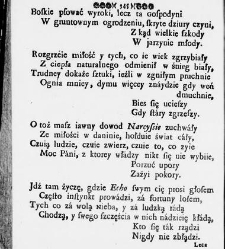 Boskie psować wyroki, lecz ta Gospodyni
W gruntownym ogrodzeniu, skryte dziury czyni,
Z kąd wielkie szkody
W jarzynie młody.
Rozgrzeie miłość y tych, co ie wiek zgrzybiały
Z ciepła naturalnego odmienił w śnieg biały,
Trudney dokaże sztuki, ieżli w zgniłym pruchnie
Ognia mnicy, dymu więcey znaydzie gdy woń
dmuchnie,
Bies się ucieszy
Gdy stary zgrzeszy.
O toż masz iawny dowod Narcyssie zuchwały
Ze miłości w daninie, hołduie świat cały,
Czują ludzie, czuie zwierz, czuie to, co zyie
Moc Pani, z ktorey władzy nikt się nie wybiie,
Porzuć upory
Zażyi pokory.
Jdź tam życzę, gdzie Echo swym cię prosi głosem
Często instynkt prowadzi, za fortuny losem,
Tych co za wolą nieba, y za ludzką radą
Chodzą, y swego szczęścia w nich nadzieię kładą,
Kto się tak rządzi
Nigdy nie zbłądzi.
Lecz